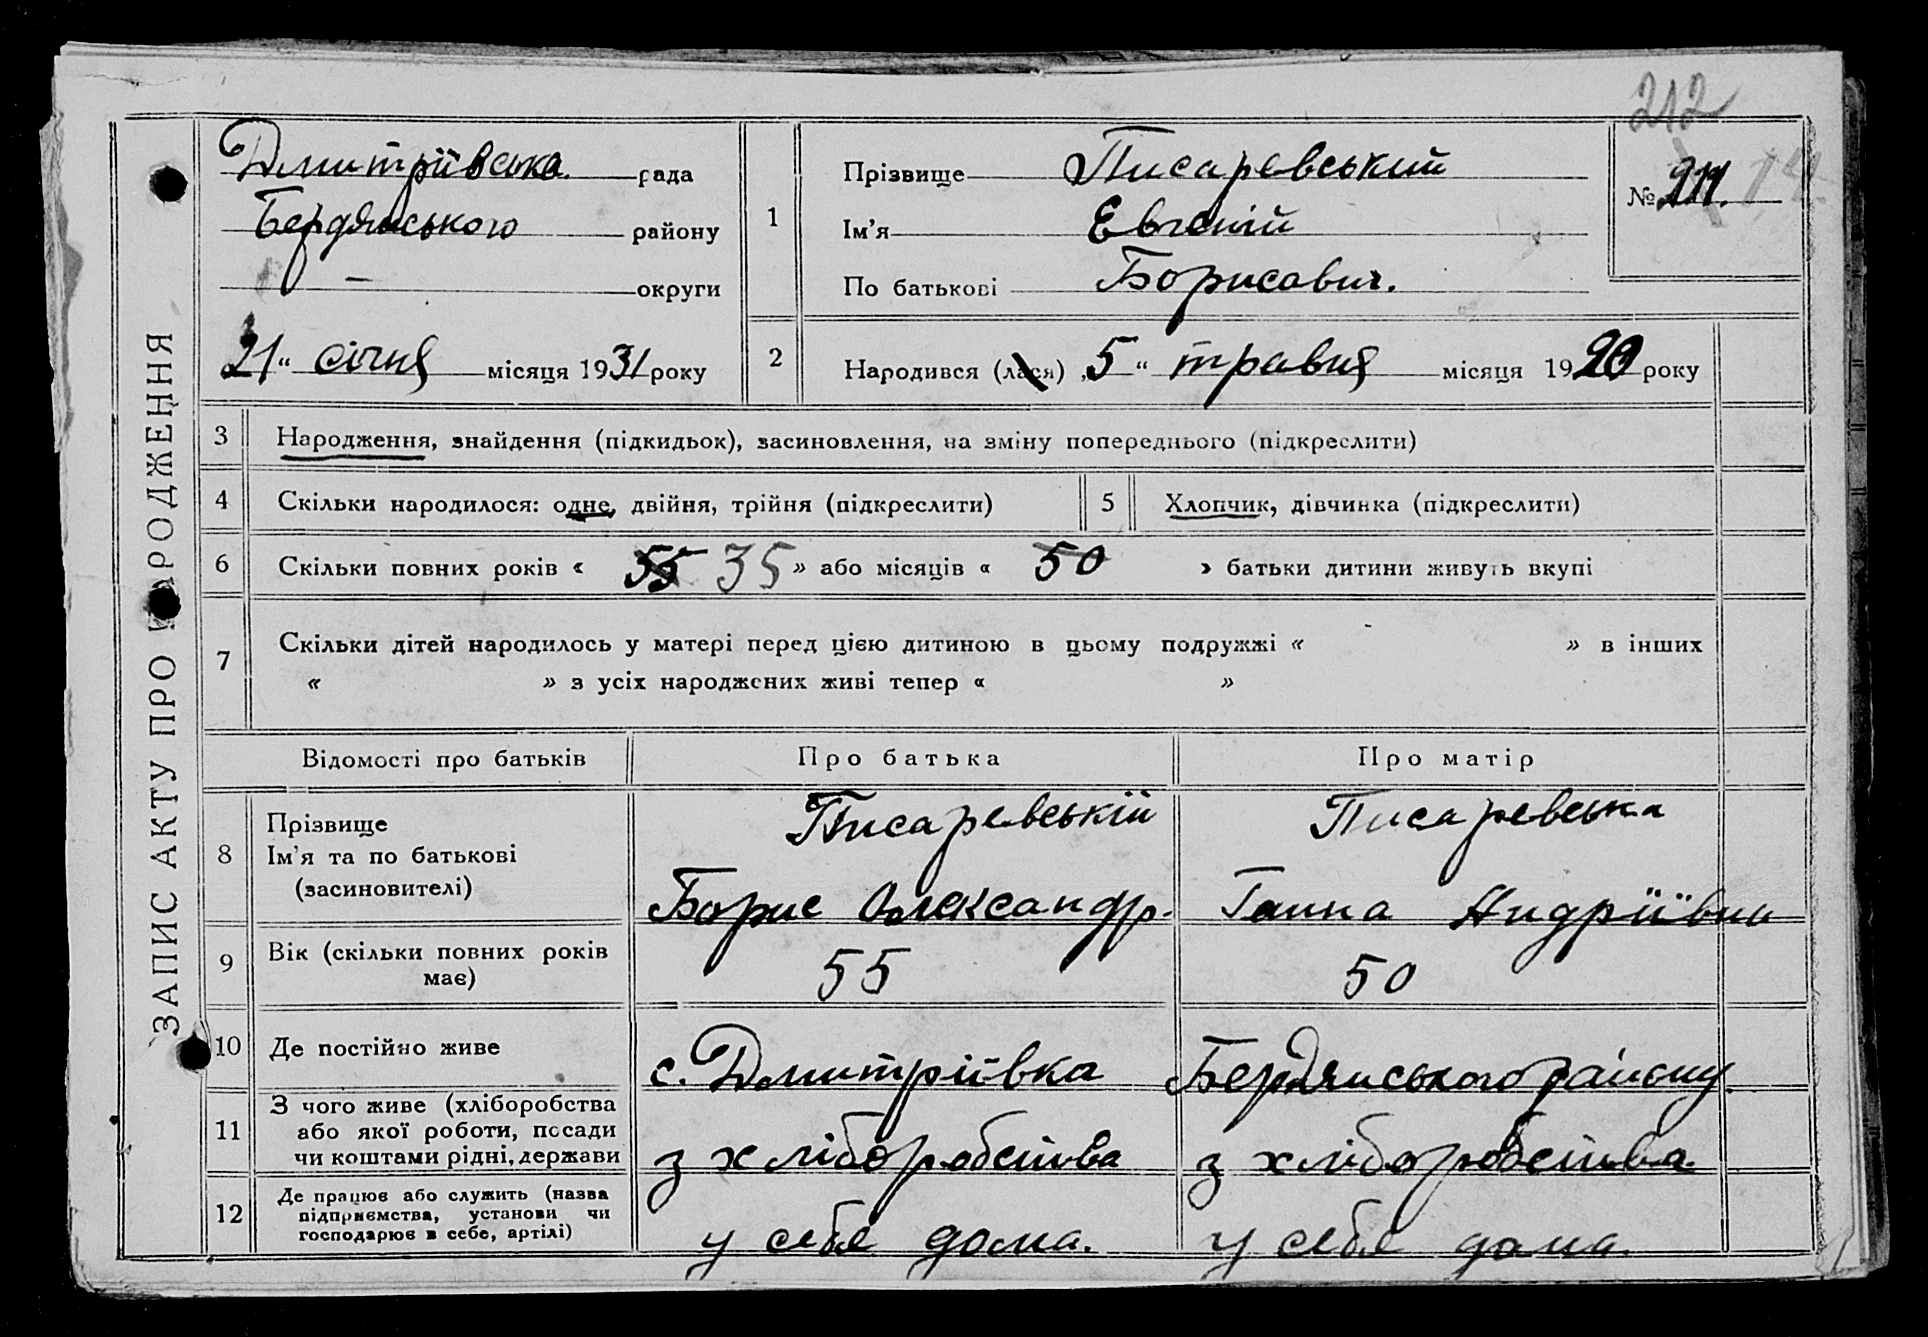 212
ЗАПИС АКТУ ПРО НАРОДЖЕННЯ
Дмитріївська рада
Бердянського району
— округи
21 „ січня місяця 1931 року
1
Прізвище Писаревський
Ім’я Евгеній
По батькові Борисович.
№ 211.
2
Народився (лася) „5“ травня місяця 1920 року
3 Народження, знайдення (підкидьок), засиновлення, на зміну попереднього (підкреслити)
4 Скільки народилося: одне, двійня, трійня (підкреслити)
5 Хлопчик, дівчинка (підкреслити)
6 Скільки повних років « 55 35 » або місяців « 50 » батьки дитини живуть вкупі
7 Скільки дітей народилось у матері перед цією дитиною в цьому подружжі « » в інших
« » з усіх народжених живі тепер « »
Відомості про батьків Про батька Про матір
8 Прізвище
Ім’я та по батькові
(засиновителі)
Писаревській
Борис Олександр.
Писаревська
Ганна Андріївна
9 Вік (скільки повних років
має)
55 50
10 Де постійно живе с. Дмитріівка Бердянського району
11 З чого живе (хліборобства
або якої роботи, посади
чи коштами рідні, держави
з хліборобства з хліборобства
12 Де працює або служить (назва
підприємства, установи чи
господарює в себе, артілі)
у себе дома. у себе дома.